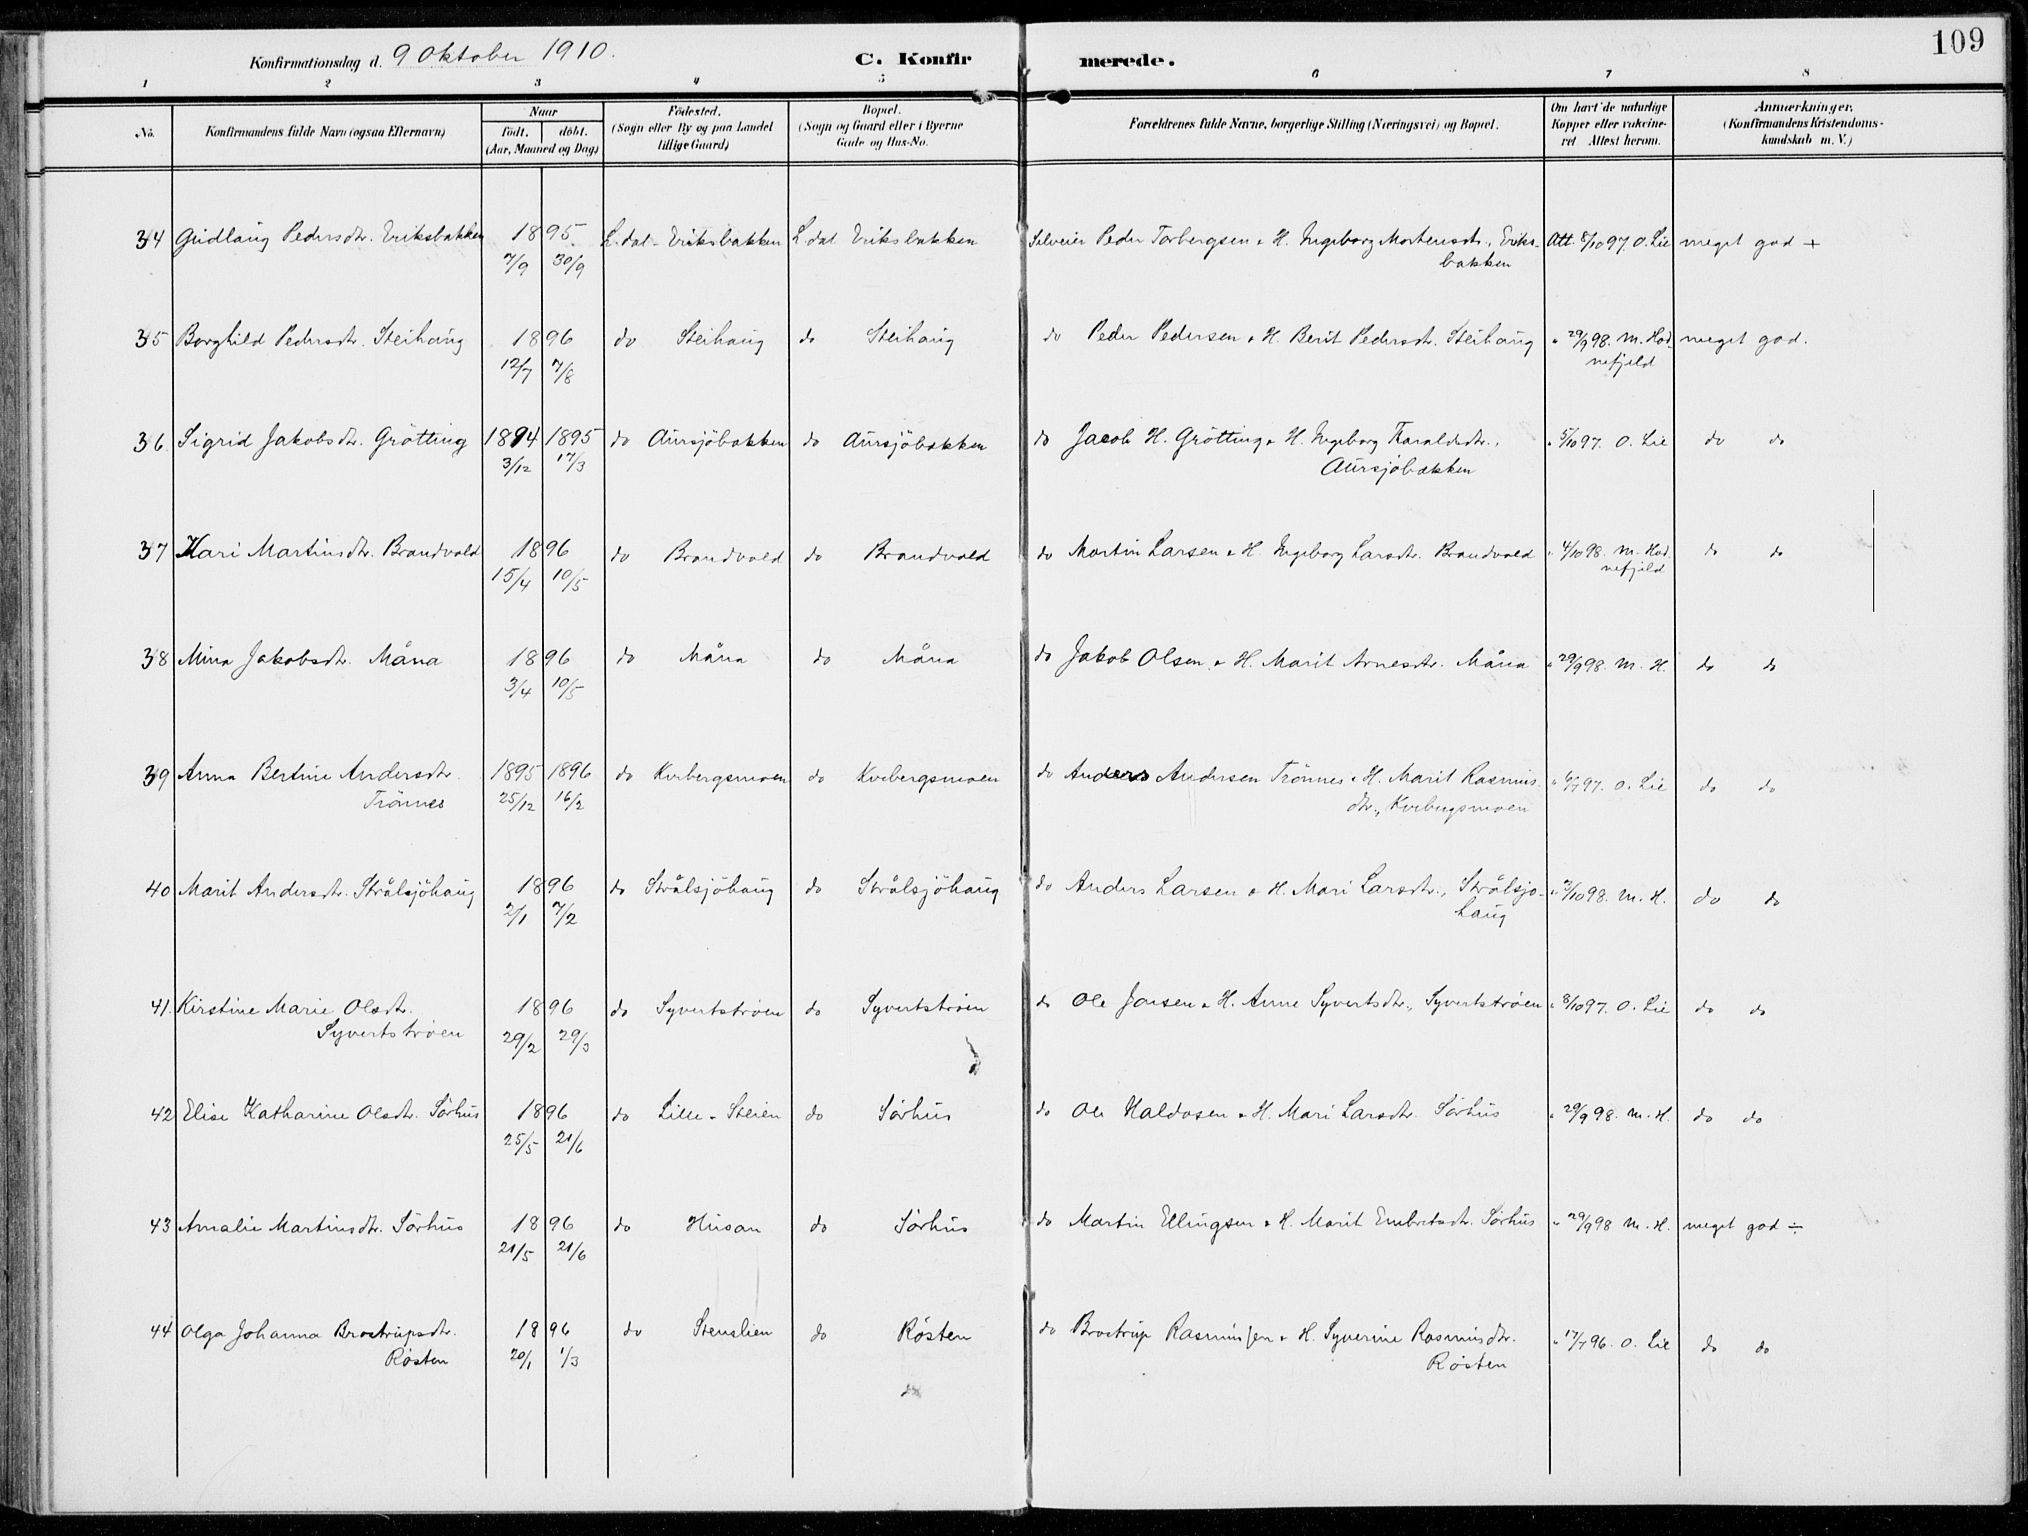 109
Konfirmationsdag d. 9 Oktober 1910.
C. Konfirmerede.
1 2 3 4 5 6 7 8
No. Konfirmandens fulde Navn (ogsaa Efternavn) Naar født. døbt. (Aar, Maaned og Dag) Fødested. (Sogn eller By og paa Landet tillige Gaard) Bopæl. (Sogn og Gaard eller i Byerne Gade og Hus-No. Forældrenes fulde Navne, borgerlige Stilling (Næringsvei) og Bopæl. Om havt de naturlige Kopper eller vakcineret Attest herom. Anmærkninger. (Konfirmandens Kristendomskundskab m. V.)
34 Gudlaug Pedersdtr. Eriksbakken 1895. 7/9 30/9 L.dal - Eriksbakken L.dal Eriksbakken Selveier Peder Torbergsen & H. Ingeborg Mortensdtr., Eriksbakken Att. 8/10 97. O. Lie meget god +
35 Borghild Pedersdtr. Steihaug 1896 12/7 7/8 do Steihaug do Steihaug do Peder Pedersen & H. Berit Pedersdtr. Steihaug " 29/9 98. M. Hodnefjeld meget god.
36 Sigrid Jakobsdtr. Grøtting 1894 1895 3/12 17/3 do Aursjöbakken do Aursjöbakken do Jacob H. Grøtting & H. Ingeborg Haraldsdtr., Aursjöbakken " 5/10 97. O. Lie do do
37 Kari Martinsdtr. Brandvold 1896 15/4 10/5 do Brandvold do Brandvold do Martin Larsen & H. Ingeborg Larsdtr. Brandvold " 4/10 98. M. Hodnefjeld do do
38 Mina Jakobsdtr. Måna 1896 3/4 10/5 do Måna do Måna do Jakob Olsen & H. Marit Arnesdtr. Måna " 29/9 98. M. H. do do
39 Anna Bertine Andersdtr. Trönnes 1895 1896 25/12 16/2 do Kvebergsmoen do Kvebergsmoen do Anders Andersen Trönnes & H. Marit Rasmusdtr., Kvebergsmoen " 6/7 97. O. Lie do do
40 Marit Andersdtr. Strålsjöhaug 1896 2/1 7/2 do Strålsjöhaug do Strålsjöhaug do Anders Larsen & H. Mari Larsdtr., Strålsjöhaug " 3/10 98. M. H. do do
41. Kirstine Marie Olsdtr. Syvertstrøen 1896 29/2 29/3 do Syvertstrøen do Syvertstrøen do Ole Jonsen & H. Anne Syvertsdtr., Syvertstrøen " 8/10 97. O. Lie do do
42 Elise Katharine Olsdtr. Sørhus 1896 25/5 21/6 do Lille - Steien do Sørhus do Ole Haldosen & H. Mari Larsdtr. Sørhus " 29/9 98. M. H. do do
43 Amalie Martinsdtr. Sørhus 1896 21/5 21/6 do Husan do Sørhus do Martin Ellingsen & H. Marit Embretsdtr. Sørhus " 29/9 98 M. H. meget god ÷
44 Olga Johanna Brostrupsdtr. Røsten 1896 20/1 1/3 do Stenslien do Røsten do Brostrup Rasmussen & H. Syverine Rasmusdtr. Røsten " 17/7 96. O. Lie do do